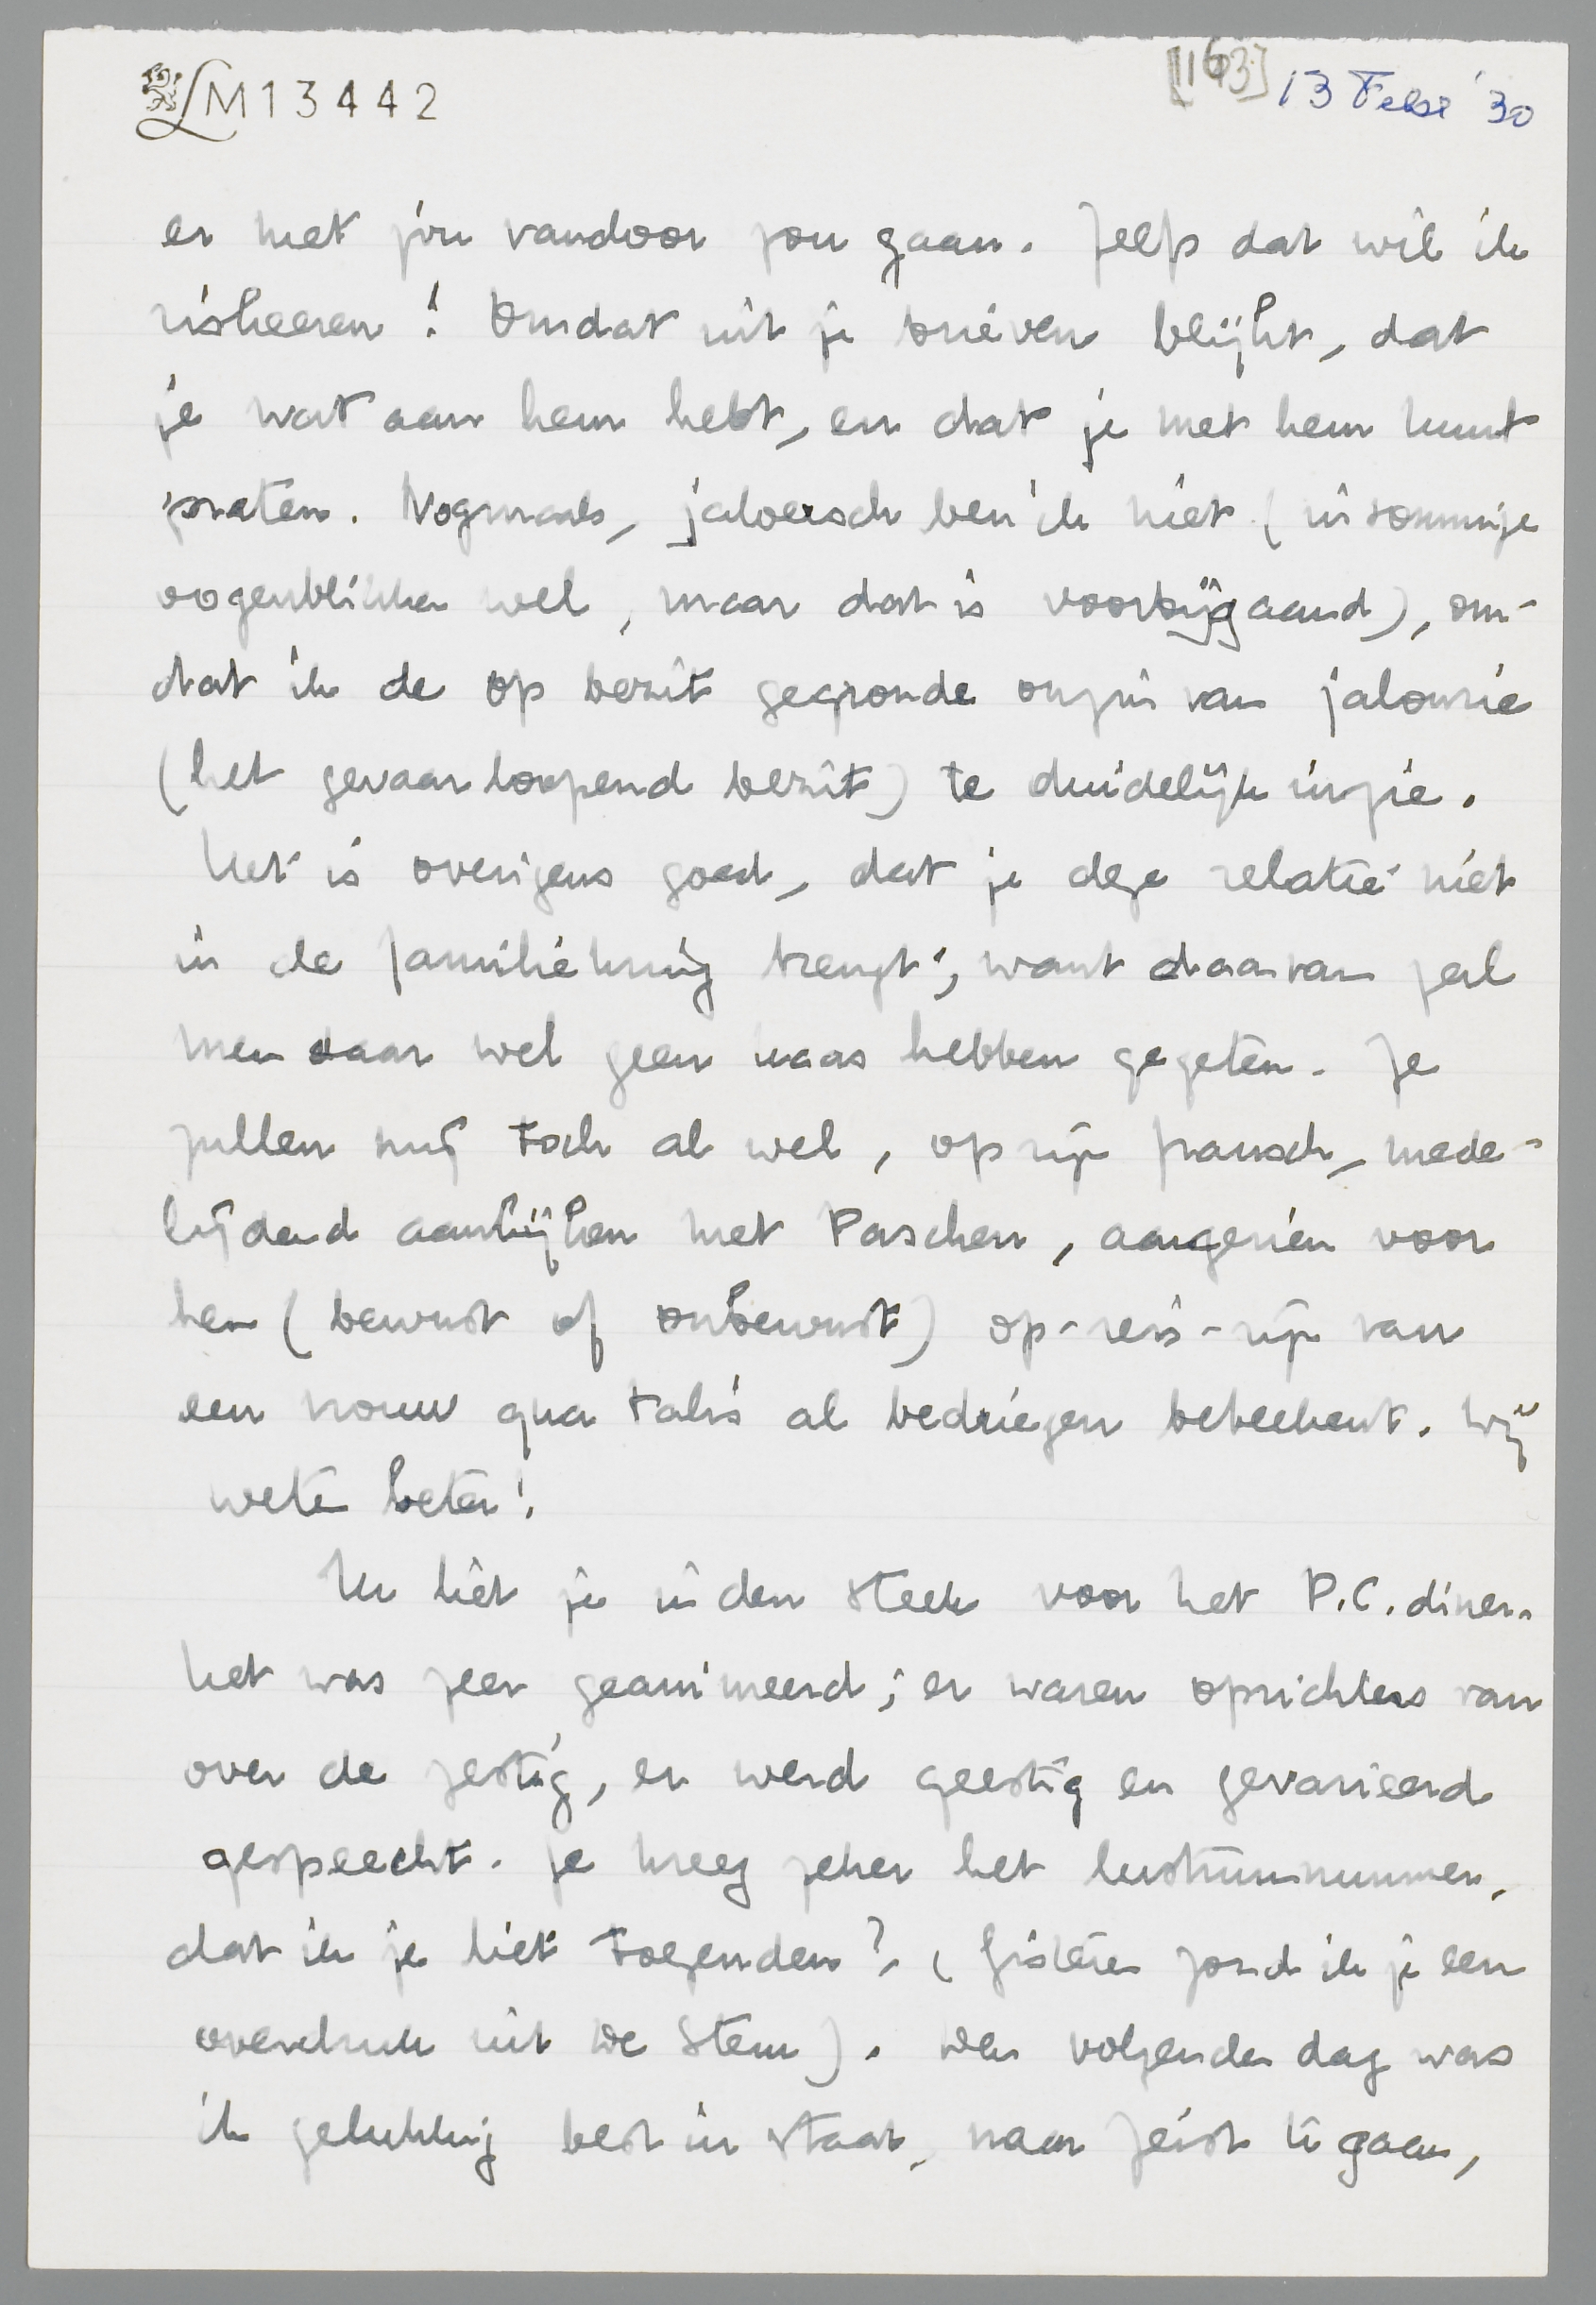 LM13442
[163] 13 Febr '30
er met jou vandoor zou gaan. Zelfs dat wil ik
riskeeren! Omdat uit je brieven blijkt, dat
je wat aan hem hebt, en dat je met hem kunt
praten. Nogmaals, jaloersch ben ik niet (in sommige
oogenblikken wel, maar dat is voorbijgaand), om-
dat ik de op bezit gegronde onzin van jalouzie
(het gevaarloopend bezit) te duidelijk inzie.
Het is overigens goed, dat je deze relatie niet
in de familiekring brengt; want daarvan zal
men daar wel geen kaas hebben gegeten. Ze
zullen mij toch al wel, op zijn fransch, mede-
lijdend aankijken met Paschen, aangezien voor
hen (bewust of onbewust) op-reis-zijn van
een vrouw qua talis al bedriegen beteekent. Wij
weten beter!
Ik liet je in den steek voor het P.C. diner.
Het was zeer geanimeerd; er waren oprichters van
over de zestig, er werd geestig en gevarieerd
gespeecht. Je kreeg zeker het lustrumnummer,
dat ik je liet toezenden? (Gisteren zond ik je een
overdruk uit De Stem). Den volgenden dag was
ik gelukkig best in staat, naar Zeist te gaan,